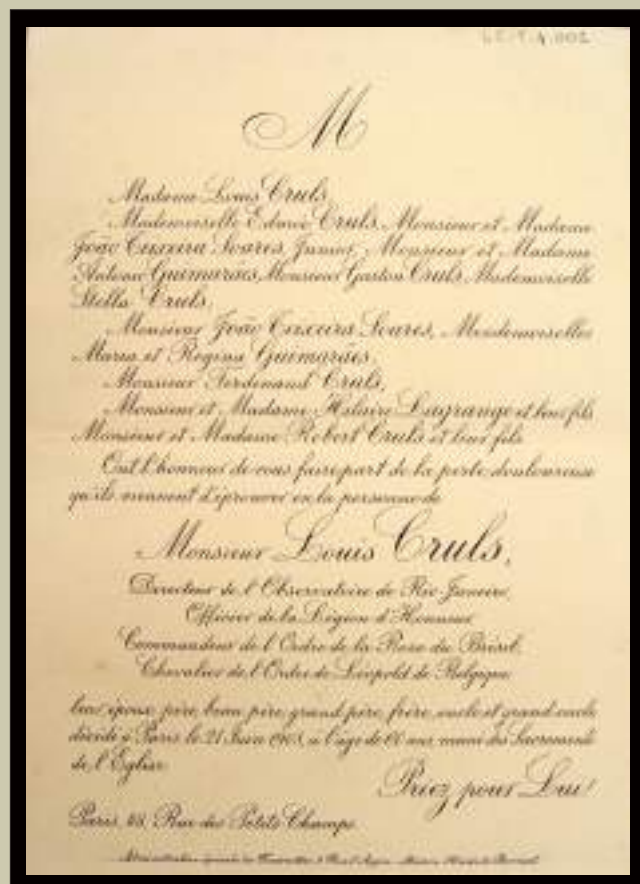 M
Madame Louis Cruls,
Mademoiselle Edmée Cruls, Monsieur et Madame
João Teixeira Soares Junior, Monsieur et Madame
Antonio Guimarães, Monsieur Gaston Cruls, Mademoiselle
Stella Cruls,
Monsieur João Teixeira Soares, Mesdemoiselles
Maria et Regina Guimarães,
Monsieur Ferdinand Cruls,
Monsieur et Madame Hilaire Lagrange et leur fils
Monsieur et Madame Robert Cruls et leur fils
Ont l'honneur de vous faire part de la perte douloureuse
qu'ils viennent d'éprouver en la personne de
Monsieur Louis Cruls,
Directeur de l'Observatoire de Rio-Janeiro,
Officier de la Légion d'Honneur
Commandeur de l'Ordre de la Rose du Brésil,
Chevalier de l'Ordre de Léopold de Belgique
leur époux, père, beau-père, grand-père, frère, oncle et grand-oncle
décédé à Paris le 21 Juin 1908, à l'âge de 60 ans, muni des Sacrements
de l'Église
Priez pour Lui!
Paris, Rue des Petits Champs